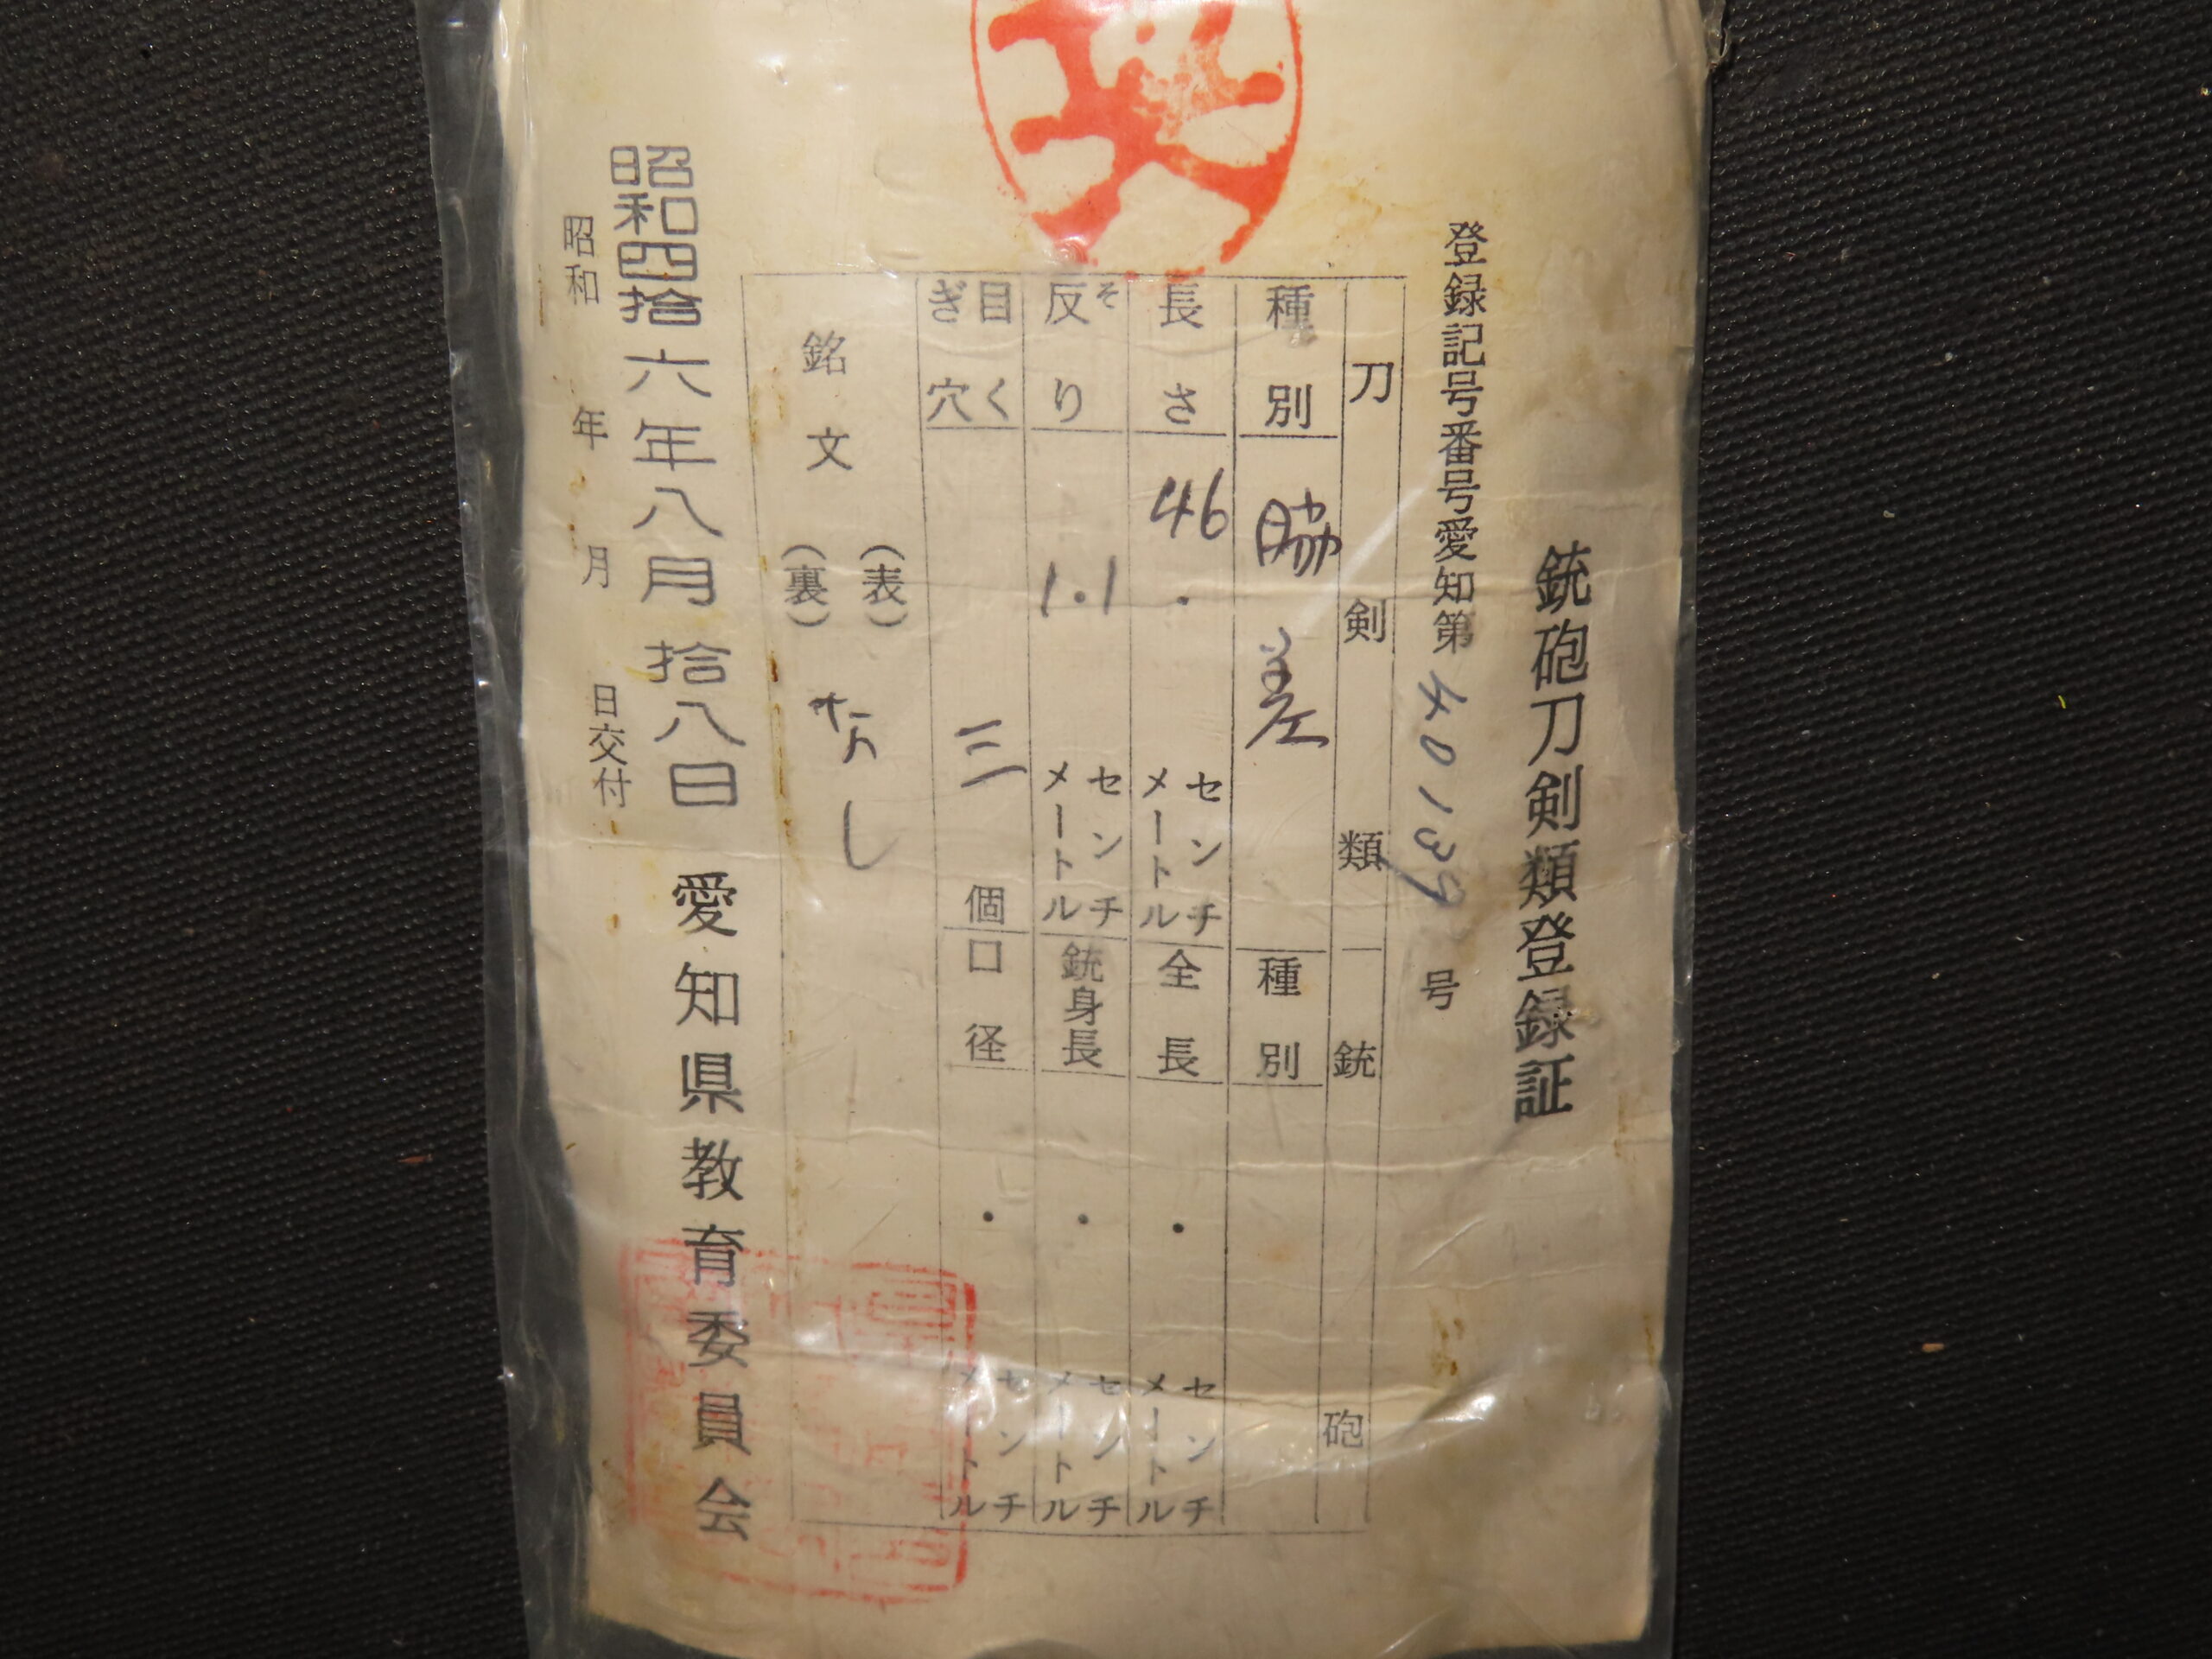 銃砲刀剣類登録証
登録記号番号愛知第40139号
刀剣類
銃砲
種別
脇差
種別
長さ
46.
センチメートル
全長
・
センチメートル
反り
そ
1.1
センチメートル
銃身長
・
センチメートル
目くぎ穴
三
個
口径
・
センチメートル
銘文
(表)
(裏)
なし
昭和四拾六年八月拾八日
愛知県教育委員会
昭和 年 月 日交付